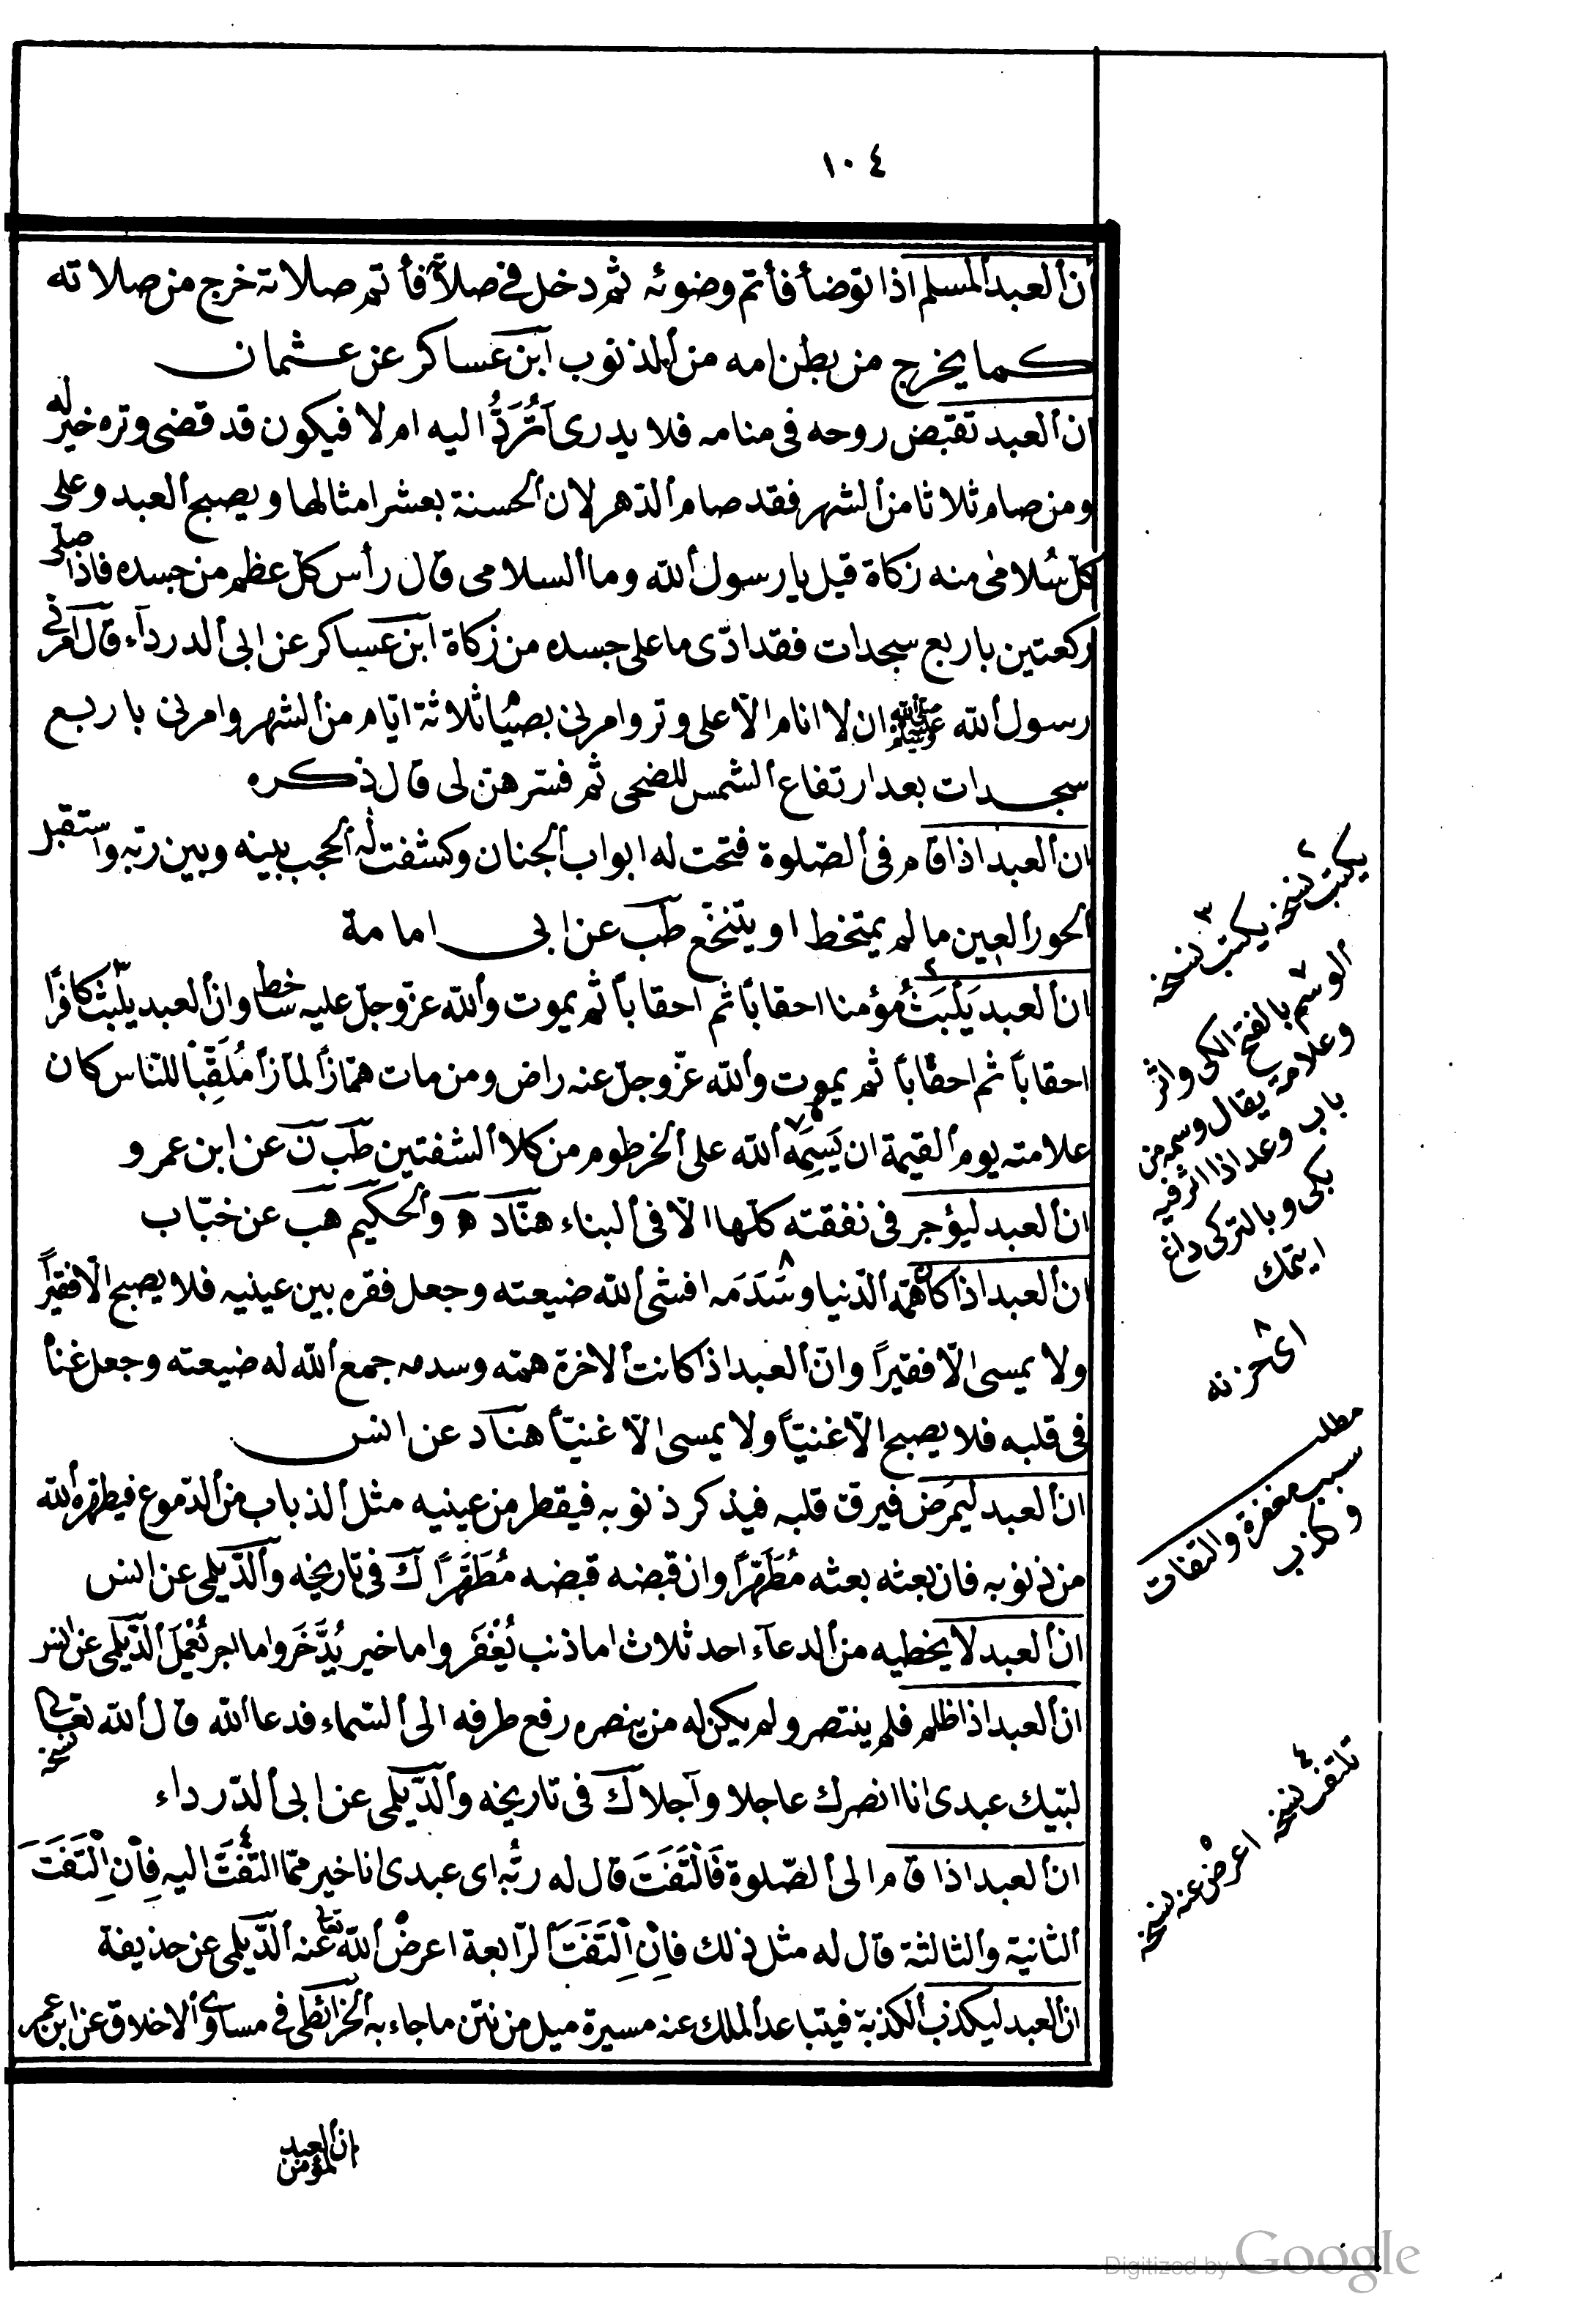 ١٠٤
ان العبد المسلم اذا توضأ فأتم وضوئه ثم دخل في صلاته فأتم صلاته خرج من صلاته
كما يخرج من بطن امه من الذنوب ابن عساكر عن عثمان
ان العبد تقبض روحه فى منامه فلا يدرى أَتُرَدُّ اليه ام لا فيكون قد قضى وتره خير له
ومن صام ثلاثا من الشهر فقد صام الدهر لان الحسنة بعشر امثالها ويصبح العبد وعلى
كل سُلامى منه زكاة قيل يا رسول الله وما السلامى قال رأس كل عظم من جسده فاذا صلى
ركعتين باربع سجدات فقد ادّى ما على جسده من زكاة ابن عساكر عن ابى الدرداء قال امرنى
رسول الله ﷺ ان لا انام الا على وتر وامرنى بصيام ثلاثة ايّام من الشهر وامرنى باربع
سجدات بعد ارتفاع الشمس للضحى ثم فسرهن لى قال ذكره
ان العبد اذا قام فى الصّلوة فتحت له ابواب الجنان وكشفت له الحجب بينه وبين ربّه واستقبل
الحور العين مالم يمتخط او يتنخّع طب عن ابى امامة
ان العبد يَلْبَثُ مؤمنا احقاباً ثم احقاباً ثم يموت والله عزّ وجلّ عليه ساخط وان العبد يلبث كافراً
احقاباً ثم احقاباً ثم يموت والله عزّ وجلّ عنه راض ومن مات همّازاً لمّازاً مُلَقِّباً للنّاس كان
علامته يوم القيمة ان يَسِمَهُ الله على الخرطوم من كلا الشفتين طب ن عن ابن عمرو
ان العبد ليؤجر فى نفقته كلّها الّا فى البناء هنّاد ه والحكيم هب عن خبّاب
ان العبد اذا كان همّه الدّنيا وسَدَمَه افشى الله ضيعته وجعل فقره بين عينيه فلا يصبح الّا فقيراً
ولا يمسى الّا فقيراً وانّ العبد اذا كانت الاخرة همّه وسدمه جمع الله له ضيعته وجعل غناً
فى قلبه فلا يصبح الّا غنيّاً ولا يمسى الّا غنيّاً هناد عن انس
ان العبد ليَمرَض فيرق قلبه فيذكر ذنوبه فيقطر من عينيه مثل الذباب من الدّموع فيطهّره الله
من ذنوبه فان بعثه بعثه مُطَهَّراً وان قبضه قبضه مُطَهَّراً ك فى تاريخه والدّيلمى عن انس
ان العبد لا يخطيه من الدعآء احد ثلاث اما ذنب يُغْفَر واما خير يُدَّخَر واما اجر يُعْمَل الدّيلمى عن انس
ان العبد اذا ظلم فلم ينتصر ولم يكن له من ينصره رفع طرفه الى السّماء فدعا الله قال الله تعالى نسخه
لبّيك عبدى انا انصرك عاجلا وآجلا ك فى تاريخه والدّيلمى عن ابى الدّرداء
ان العبد اذا قام الى الصّلوة فَالْتَفَتَ قال له ربُّه اى عبدى انا خير ممّا التَفَتَّ اليه فاِن اِلْتَفَتَ
الثانية والثالثة قال له مثل ذلك فاِن اِلْتَفَتَ الرّابعة اعرض الله تعا عنه الدّيلمى عن حذيفة
ان العبد ليكذب الكذبة فيتباعد الملك عنه مسيرة ميل من نتن ما جاء به الخرائطى فى مساوى الاخلاق عن ابن عمر
ان العبد المؤمن
٢ يكتب نسخه ٣ يكتب نسخه
٧ الوسم بالفتح الكى واثر
وعلامة يقال وسمه من
باب وعد اذا اثر فيه
بكى وبالتركى داغ
ايتمك
٨ اى حزنه
مطلب
سبب مغفرة والتفات
وكذب
٤ تلتفت نسخه ٥ اعرض عنه نسخه
Digitized by Google